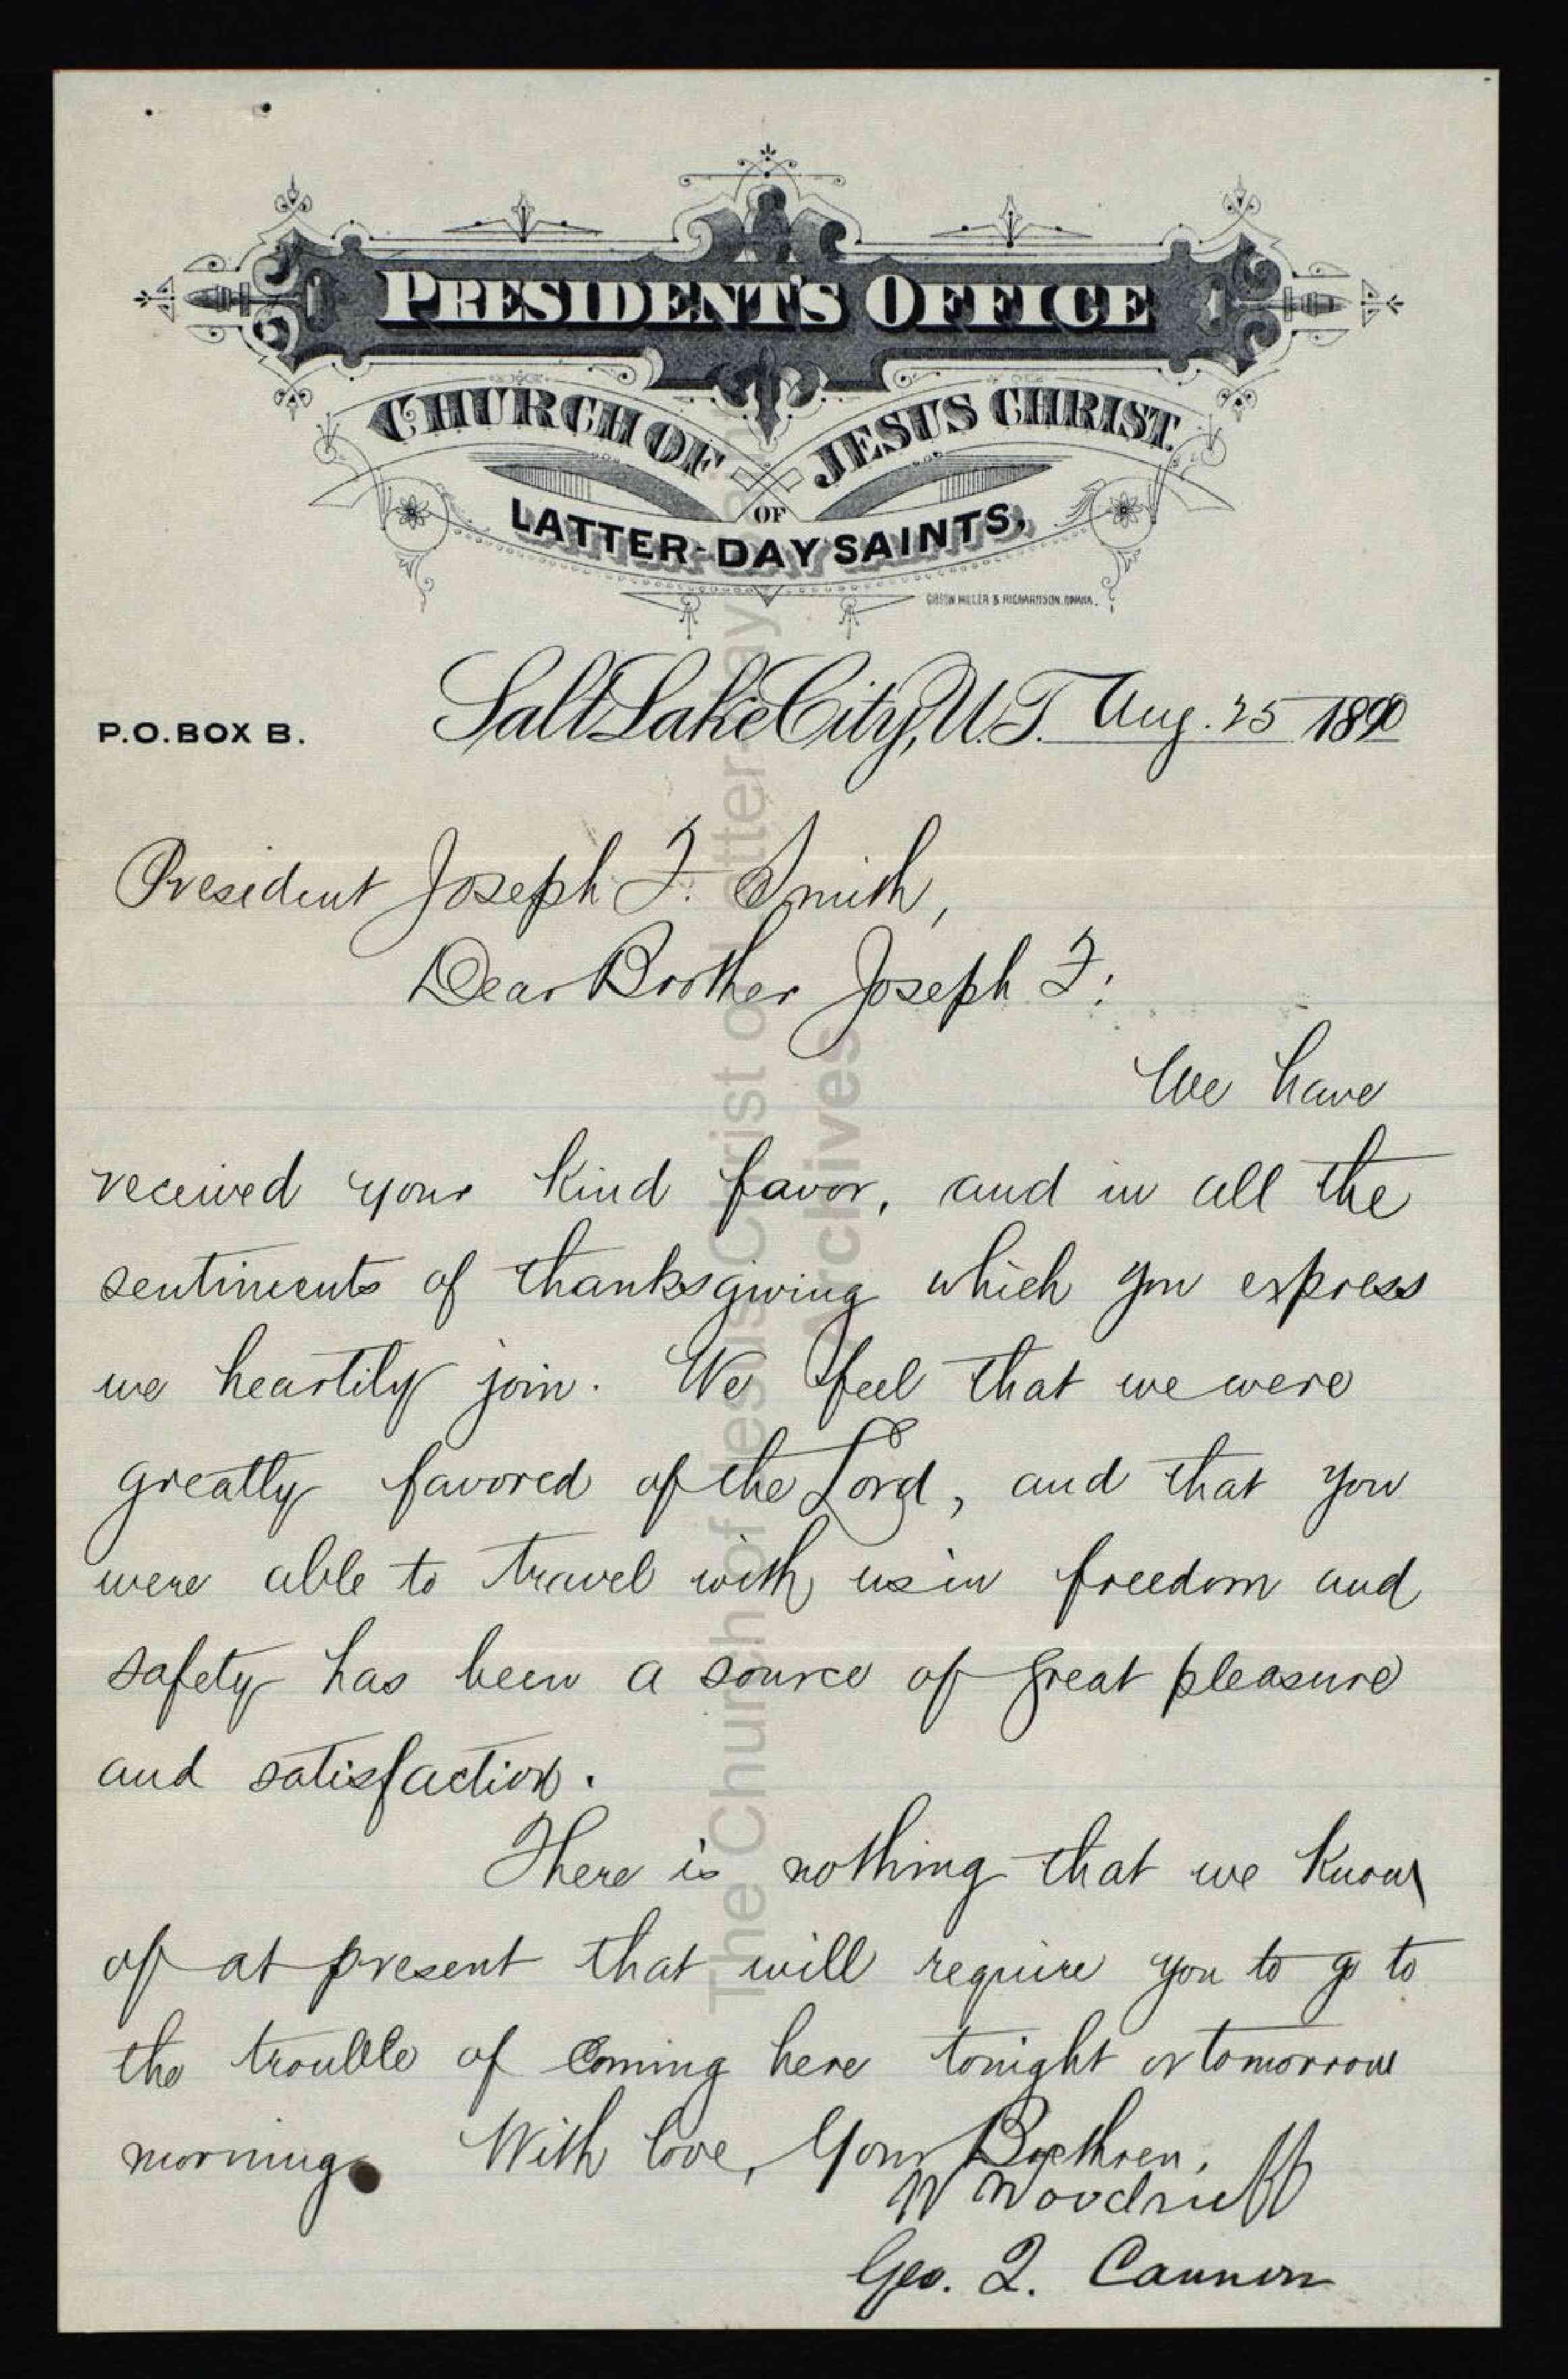 PRESIDENT'S OFFICE
CHURCH OF JESUS CHRIST
OF
LATTER-DAY SAINTS,
GIBSON MILLER & RICHARDSON, OMAHA.
P.O. BOX B.
Salt Lake City, U.T. Aug. 25 1890
President Joseph F. Smith,
Dear Brother Joseph F:
We have
received your kind favor, and in all the
sentiments of thanksgiving which you express
we heartily join. We feel that we were
greatly favored of the Lord, and that you
were able to travel with us in freedom and
safety has been a source of great pleasure
and satisfaction.
There is nothing that we know
of at present that will require you to go to
the trouble of coming here tonight or tomorrow
morning. With love, Your Brethren,
W Woodruff
Geo. Q. Cannon
The Church of Jesus Christ of Latter-day
Archives